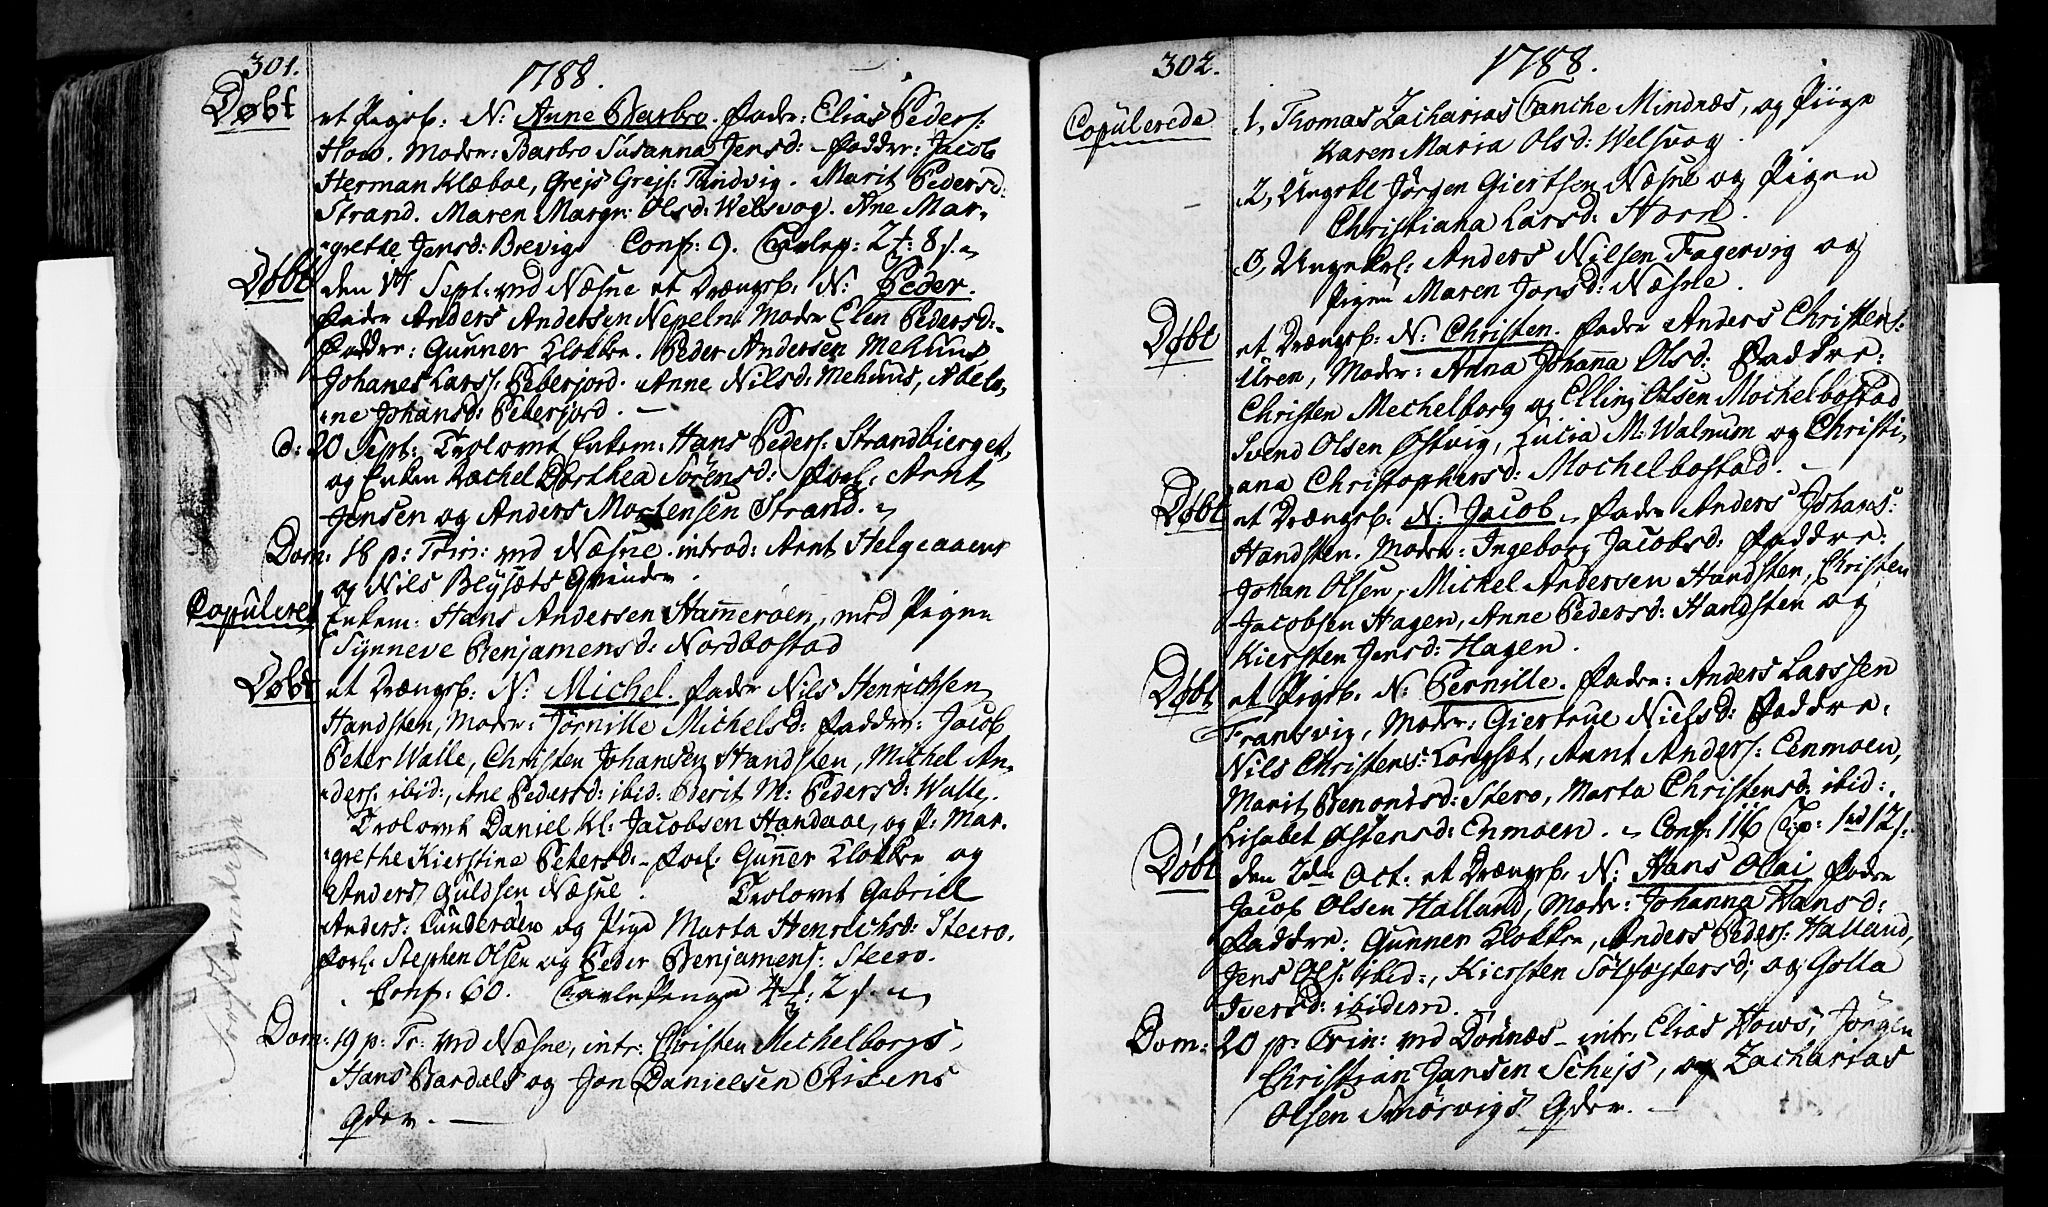 301.
1788.
Døbt
et Pigeb: N: Anne Barbro. Fader: Elias Peders:
How. Moder: Barbro Susanna Jensd: Faddre: Jacob
Herman Klæboe, Grejs Grejs: Marit Pedersd:
Strand. Maren Margr: Olsd: Welsvog. Ane Mar-
grethe Jensd: Brevig Conf: 9. Tavlep: 2 8 s.
Døbt
den Sept: ved Næsne et Drængeb: N: Peder.
Fader Anders Andersen Nepeln Moder Elen Pedersd:
Faddre: Gunner Klokker. Peder Andersen Mehuus
Johanes Larss: Feberjord. Anne Nilsd: Mehuus, Abelo-
ne Johansd: Feberjord.
d: 20 Sept: Trolovet Enkem: Hans Peders: Strandbierget,
og Enken Rachel Dorthea Sörensd: Forl: Arnt
Jensen og Anders Mortensen Strand.
Dom: 18 p: Trin: ved Næsne. introd: Arnt Helgeaaens
og Nils Qvinder.
Copuleret
Enkem: Hans Andersen Hameröen, med Pigen
Synneve Benjamensd: Nordbostad
Døbt
et Drængeb: N: Michel. Fader Nils Henrichsen
Handsten, Moder: Jörnille Michelsd: Faddre: Jacob
Peter Walle, Christen Johansen Handsten, Michel An-
ders: ibid:, Ane Pedersd: ibid: Berit M: Pedersd: Walle.
Trolovet Daniel Kl: Jacobsen Handaae, og P: Mar-
grethe Kierstine Petersd: Forl: Gunner Klokker og
Anders Guldsen Næsne. Trolovet Gabriel
Anders: og Pige Marta Henrichsd: Steero.
Forl: Stephen Olsen og Peder Benjamens: Steero.
Conf: 60. Tavlepenge 4 : 2 s.
Dom: 19 p: Tr: ved Næsne, intr: Christen Mechelborgs,
Hans Bardals og Jon Danielsen
Qder.
302.
1788.
Copulerede
1, Thomas Zacharias Tanche Mindnæs, og Piige
Karen Maria Olsd: Welsvog.
2, Ungekl Jørgen Giertsen Næsne og Pigen
Christiana Larsd: Horn.
3, Ungekrl: Anders Nilsen Fagervig og
Pigen Maren Jonsd: Næsne.
Døbt
et Drængeb: N: Christen. Fader Anders Christens:
Uren, Moder: Anna Johanna Olsd: Faddre:
Christen Mechelborg og Elling Olsen Mochelbostad
Svend Olsen Østvig, Lucia M: Walnum og Christi-
ana Christophersd: Mochelbostad.
Døbt
et Drængeb: N: Jacob. Fader Anders Johans:
Handsten. Moder: Ingeborg Jacobsd: Faddre:
Johan Olsen, Michel Andersen Handsten, Christen
Jacobsen Hagen, Anne Pedersd: Handsten og
Kiersten Jensd: Hagen.
Døbt
et Pigeb: N: Pernille. Fader: Anders Larssen
Fransvig, Moder: Giertrue Nielsd: Faddre:
Nils Christens: Langsæt, Arnt Anders: Eenmoen,
Marit Benontsd: Stero, Marta Christensd: ibid:
Lisabet Østensd: Enmoen. Conf: 116 Tp: 1 12 s.
Døbt
den 2den Oct: et Drængeb: N: Hans Olai Fader
Jacob Olsen Halland, Moder: Johanna Hansd:
Faddre: Gunner Klokker, Anders Peders: Halland,
Jens Ols: ibid:, Kiersten Sölfæstersd; og Golla
Iversd: ibidem.
Dom: 20 p: Trin: ved Dönnæs - intr: Elias Hows, Jörgen
Christian Jansen Schejs, og Zacharias
Olsen Smörvigs Qder.